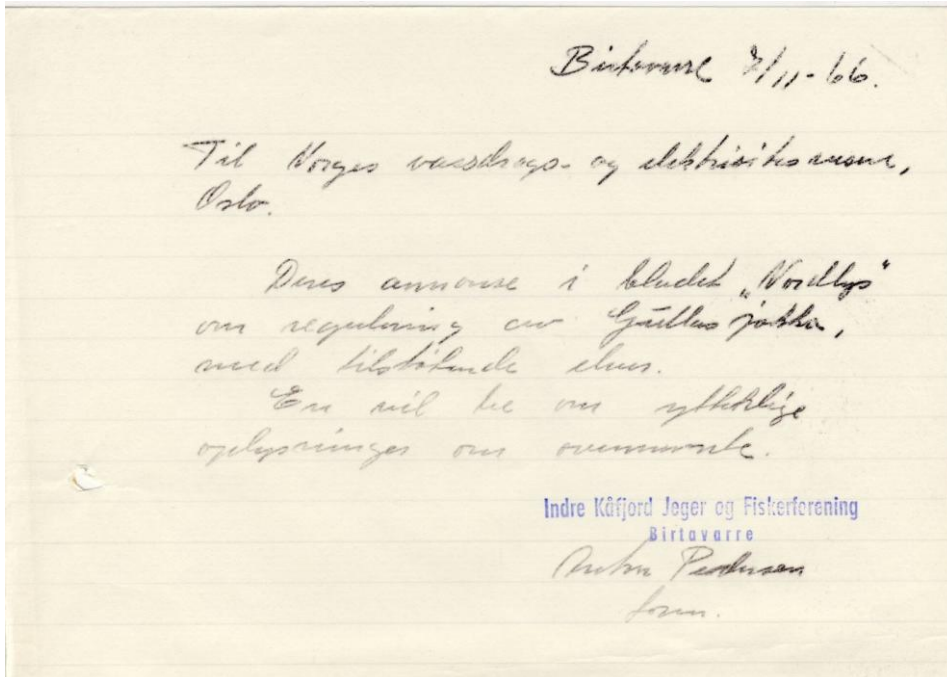 Birtavarre 7/11-66.
Til Norges vassdrags- og elektrisitetsvesen,
Oslo.
Deres annonse i bladet „Nordlys"
om regulering av Gullasjokka,
med tilstøtende elver.
En vil be om ytterlige
oplysninger om ovennevnte.
Indre Kåfjord Jeger og Fiskerforening
Birtavarre
Pedersen
form.